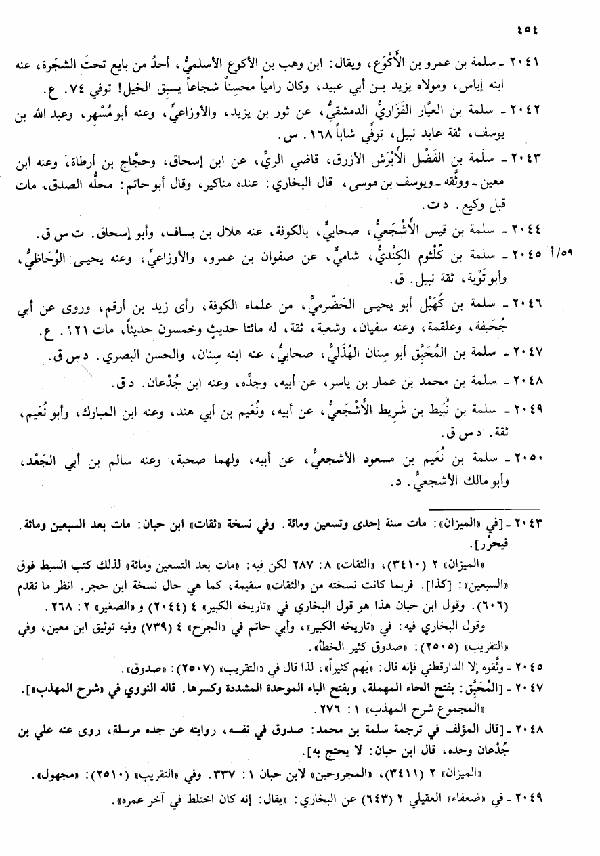 ٤٥٤
٢٠٤١ ـ سلمة بن عمرو بن الأَكْوَع، ويقال: ابن وهب بن الأكوع الأسلميُّ، أحدُ من بايع تحتَ الشجرة، عنه
ابنه إياس، ومولاه يزيد بن أبي عبيد، وكان رامياً محسناً شجاعاً يسبق الخيل! توفي ٧٤. ع.
٢٠٤٢ ـ سلمة بن العيَّار الفَزَاريُّ الدمشقيُّ، عن ثور بن يزيد، والأوزاعيِّ، وعنه أبو مُسْهر، وعبد الله بن
يوسف، ثقة عابد نبيل، توفِّي شاباً ١٦٨. س.
٢٠٤٣ ـ سلمة بن الفَضْل الأَبْرَش الأزرق، قاضي الريِّ، عن ابن إسحاق، وحجَّاج بن أرطاة، وعنه ابن
معين ـ ووثَّقه ـ ويوسف بن موسى، قال البخاري: عنده مناكير، وقال أبو حاتم: محلُّه الصدق، مات
قبل وكيع. د ت.
٢٠٤٤ ـ سلمة بن قيس الأَشْجَعيُّ، صحابيٌّ، بالكوفة، عنه هلال بن يساف، وأبو إسحاق. ت س ق.
٢٠٤٥ ـ سلمة بن كُلْثوم الكِنْديُّ، شاميٌّ، عن صفوان بن عمرو، والأوزاعيِّ، وعنه يحيى الوُحَاظيُّ، ٥٩/أ
وأبو تَوْبة، ثقة نبيل. ق.
٢٠٤٦ ـ سلمة بن كُهَيْل أبو يحيى الحَضْرميُّ، من علماء الكوفة، رأى زيد بن أرقم، وروى عن أبي
جُحَيفة، وعلقمة، وعنه سفيان، وشعبة، ثقة، له مائتا حديثٍ وخمسون حديثاً، مات ١٢١. ع.
٢٠٤٧ ـ سلمة بن المُحَبِّق أبو سِنَان الهُذَليُّ، صحابيٌّ، عنه ابنه سِنان، والحسن البصري. د س ق.
٢٠٤٨ ـ سلمة بن محمد بن عمار بن ياسر، عن أبيه، وجدِّه، وعنه ابن جُدْعان. د ق.
٢٠٤٩ ـ سلمة بن نُبَيْط بن شَرِيط الأَشْجعيُّ، عن أبيه، ونُعَيم بن أبي هند، وعنه ابن المبارك، وأبو نُعَيم،
ثقة. د س ق.
٢٠٥٠ ـ سلمة بن نُعَيم بن مسعود الأشجعيُّ، عن أبيه، ولهما صحبة، وعنه سالم بن أبي الجَعْد،
وأبو مالك الأشجعيُّ. د.
٢٠٤٣ ـ [في «الميزان»: مات سنة إحدى وتسعين ومائة. وفي نسخة «ثقات» ابن حبان: مات بعد السبعين ومائة.
فيحرَّر].
«الميزان» ٢ (٣٤١٠)، «الثقات» ٨: ٢٨٧ لكن فيه: «مات بعد التسعين ومائة» لذلك كتب السبط فوق
«السبعين»: [كذا]. فربما كانت نسخته من «الثقات» سقيمة، كما هي حال نسخة ابن حجر. انظر ما تقدم
(٦٠٦). وقول ابن حبان هذا هو قول البخاري في «تاريخه الكبير» ٤ (٢٠٤٤) و «الصغير» ٢: ٢٦٨.
وقول البخاري فيه: في «تاريخه الكبير»، وأبي حاتم في «الجرح» ٤ (٧٣٩) وفيه توثيق ابن معين، وفي
«التقريب» (٢٥٠٥): «صدوق كثير الخطأ».
٢٠٤٥ ـ وثَّقوه إلا الدارقطني فإنه قال: «يَهِم كثيراً»، لذا قال في «التقريب» (٢٥٠٧): «صدوق».
٢٠٤٧ ـ [المُحَبِّق: بفتح الحاء المهملة، وبفتح الباء الموحدة المشددة وكسرها. قاله النووي في «شرح المهذب»].
«المجموع شرح المهذب» ١: ٢٧٦.
٢٠٤٨ ـ [قال المؤلف في ترجمة سلمة بن محمد: صدوق في نفسه، روايته عن جده مرسلة، روى عنه علي بن
جُدْعان وحده، قال ابن حبان: لا يحتج به].
«الميزان» ٢ (٣٤١١)، «المجروحين» لابن حبان ١: ٣٣٧. وفي «التقريب» (٢٥١٠): «مجهول».
٢٠٤٩ ـ في «ضعفاء» العقيلي ٢ (٦٤٣) عن البخاري: «يقال: إنه كان اختلط في آخر عمره».